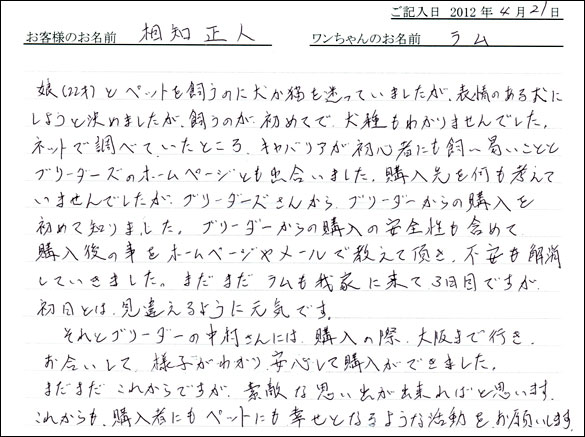 ご記入日 2012年4月21日
お客様のお名前 相知正人 ワンちゃんのお名前 ラム
娘(22才)とペットを飼うのに犬か猫を迷っていましたが、表情のある犬に
しようと決めましたが、飼うのが初めてで、犬種もわかりませんでした。
ネットで調べていたところ、キャバリアが初心者にも飼い易いことと
ブリーダーズのホームページとも出合いました。購入先を何も考えて
いませんでしたが、ブリーダーズさんから、ブリーダーからの購入を
初めて知りました。ブリーダーからの購入の安全性も含めて
購入後の事をホームページやメールで教えて頂き、不安も解消
していきました。まだまだラムも我家に来て3日目ですが、
初日とは、見違えるように元気です。
それとブリーダーの中村さんには、購入の際、大阪まで行き、
お会いして、様子がわかり、安心して購入ができました。
まだまだこれからですが、素敵な思い出が出来ればと思います。
これからも、購入者にもペットにも幸せとなるような活動をお願いします。